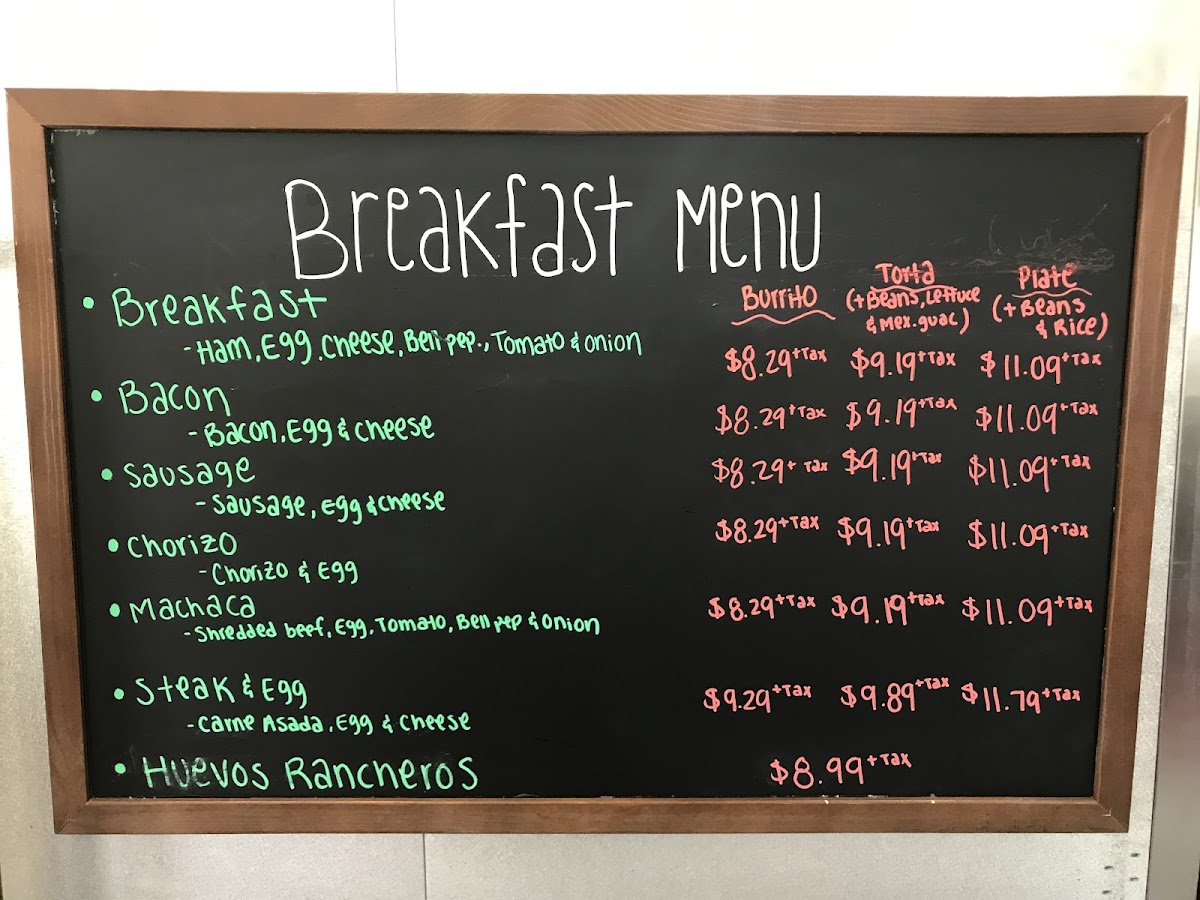 Breakfast Menu
Burrito Torta (+Beans, Lettuce & Mex.guac) Plate (+Beans & Rice)
• Breakfast
-Ham, Egg, Cheese, Bell pep., Tomato & Onion $8.29+Tax $9.19+Tax $11.09+Tax
• Bacon
-Bacon, Egg & Cheese $8.29+Tax $9.19+Tax $11.09+Tax
• Sausage $8.29+Tax $9.19+Tax $11.09+Tax
-Sausage, Egg & Cheese
• Chorizo $8.29+Tax $9.19+Tax $11.09+Tax
-Chorizo & Egg
• Machaca $8.29+Tax $9.19+Tax $11.09+Tax
-Shredded beef, Egg, Tomato, Bell pep & Onion
• Steak & Egg $9.29+Tax $9.89+Tax $11.79+Tax
-Carne Asada, Egg & Cheese
• Huevos Rancheros $8.99+Tax